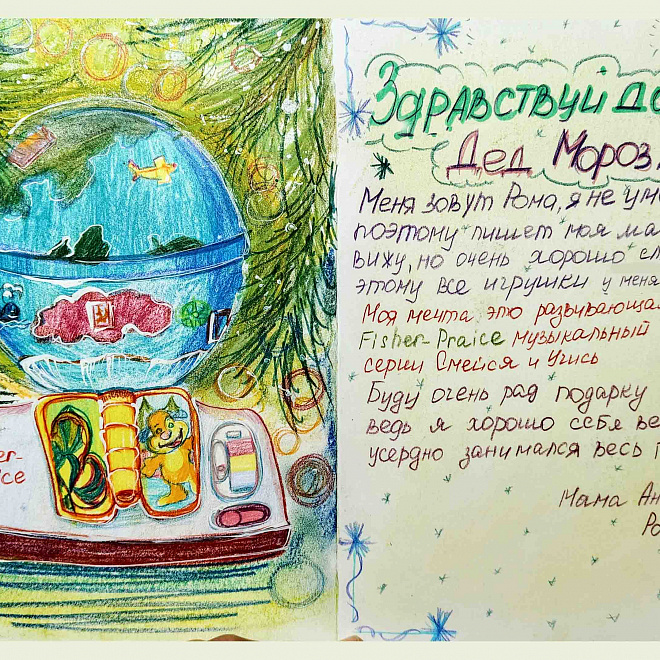 Здравствуй до
Дед Мороз
Меня зовут Рома, я не уме
поэтому пишет моя ма
вижу, но очень хорошо сл
этому все игрушки у меня
Моя мечта это развивающа
Fisher-Praice музыкальный
серии Смейся и Учись
Буду очень рад подарку
ведь я хорошо себя ве
усердно занимался весь г
Мама Ан
Ро
er-
ice